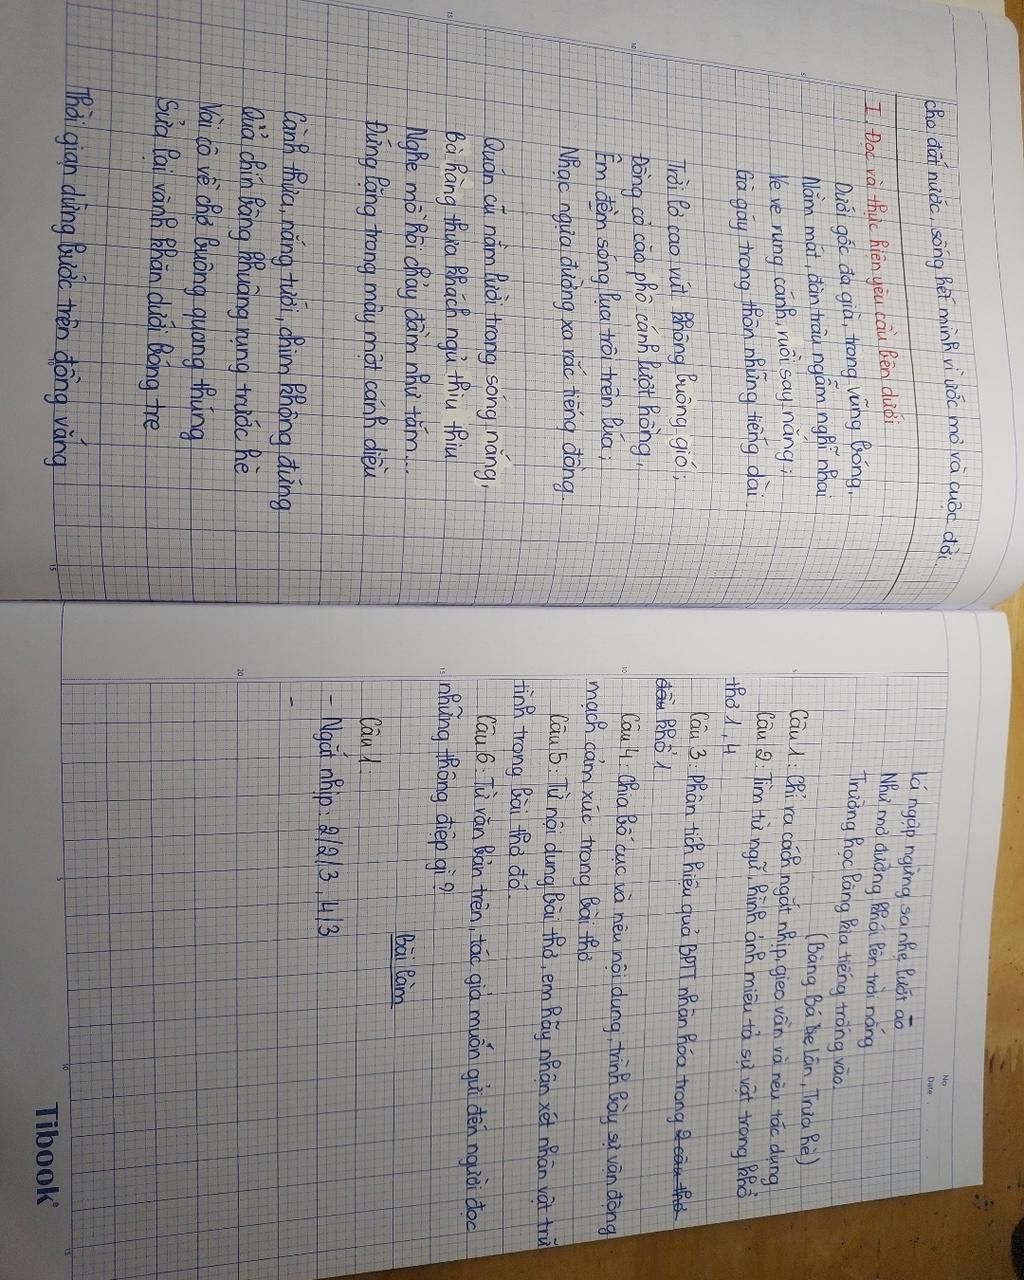 cho đất nước, sống hết mình vì ước mơ và cuộc đời.
I. Đọc và thực hiện yêu cầu bên dưới
Dưới gốc đa già, trong vũng bóng,
Nằm mát, đàn trâu ngẫm nghĩ nhai
Ve ve rung cánh, ruồi say nắng;
Gà gáy trong thôn những tiếng dài.
Trời lơ cao vút không buông gió;
Đồng cỏ cào phô cánh lướt hồng,
Êm đềm sóng lụa trôi trên lúa;
Nhạc ngựa đường xa rắc tiếng đồng.
Quán cũ nằm lười trong sóng nắng,
Bà hàng thưa khách ngủ thiu thiu
Nghe mồ hôi chảy đầm như tắm...
Đứng lặng trong mây một cánh diều
Cành thưa, nắng tưới, chim không đứng
Quả chín bâng khuâng rụng trước hè
Vài cô về chợ buông quang thúng
Sửa lại vành khăn dưới bóng tre
Thời gian dừng bước trên đồng vắng
No
Date
Lá ngập ngừng sa nhẹ lướt ao
Như mơ đường khói lên trời nắng
Trường học làng kia tiếng trống vào.
(Bàng Bá Lân, Trưa hè)
Câu 1: Chỉ ra cách ngắt nhịp, gieo vần và nêu tác dụng
Câu 2: Tìm từ ngữ, hình ảnh miêu tả sự vật trong khổ
thơ 1, 4
Câu 3: Phân tích hiệu quả BPTT nhân hóa trong 2 câu thơ
đầu khổ 1
Câu 4: Chia bố cục và nêu nội dung, trình bày sự vận động
mạch cảm xúc trong bài thơ
Câu 5: Từ nội dung bài thơ, em hãy nhận xét nhân vật trữ
tình trong bài thơ đó.
Câu 6: Từ văn bản trên, tác giả muốn gửi đến người đọc
những thông điệp gì?
Bài làm
Câu 1:
- Ngắt nhịp: 2/2/3, 4/3
-
Tibook